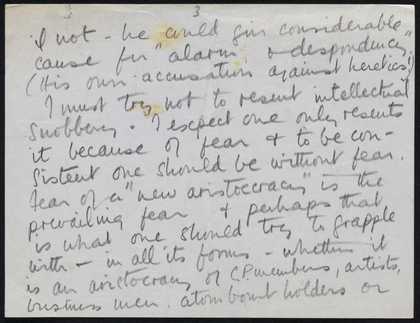 3 3
if not - he could give considerable
cause for "alarm & despondency"
(His own accusation against heretics!)
I must try not to resent intellectual
snobbery. I expect one only resents
it because of fear & to be con-
sistent one should be without fear.
Fear of a "new aristocracy" is the
prevailing fear & perhaps that
is what one should try to grapple
with - in all its forms - whether it
is an aristocracy of C.P. members, artists,
business men, atom bomb holders or